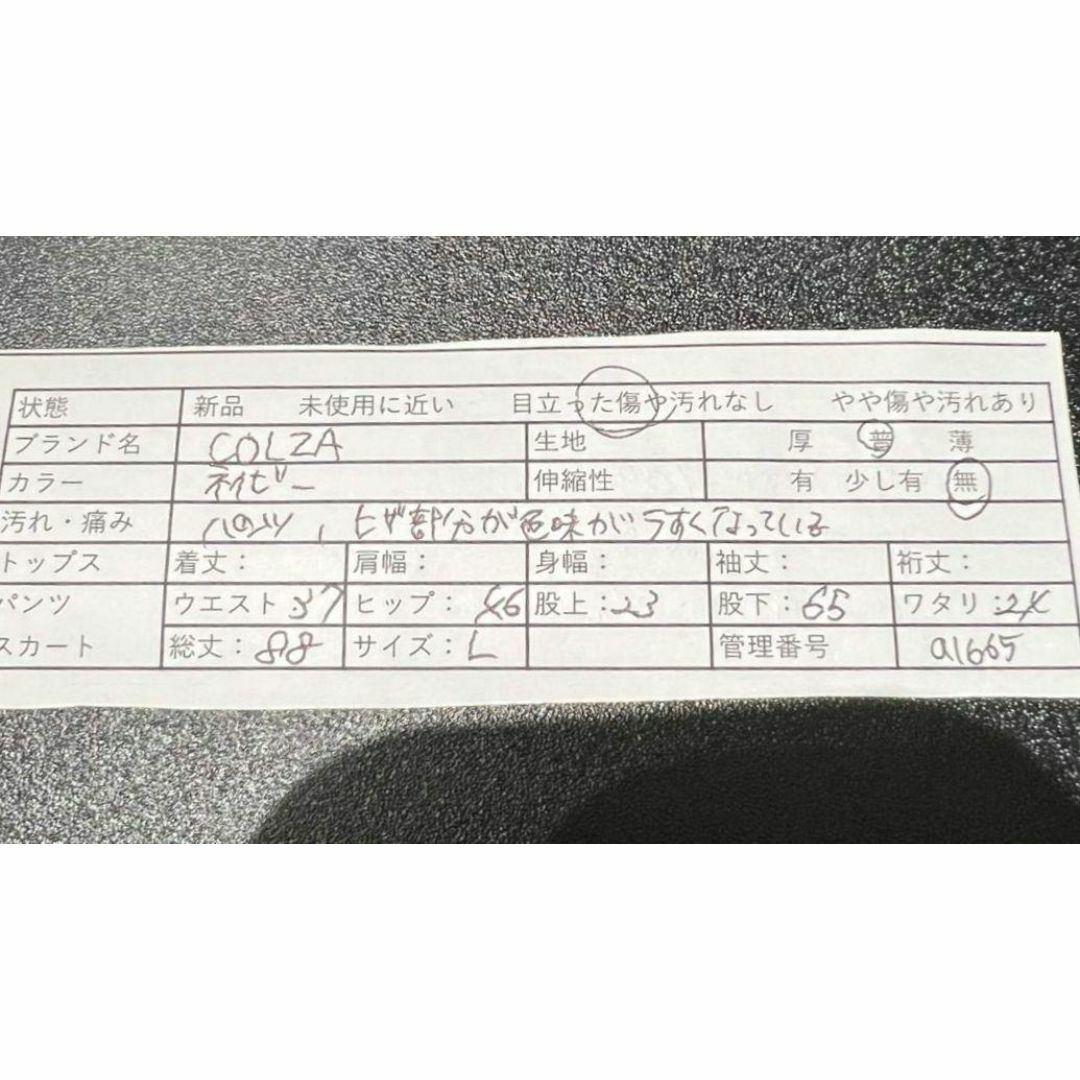 状態 新品 未使用に近い 目立った傷や汚れなし やや傷や汚れあり
ブランド名 COLZA 生地 厚 普 薄
カラー ネイビー 伸縮性 有 少し有 無
汚れ・痛み パンツ、ヒザ部分が色味がうすくなっている
トップス 着丈: 肩幅: 身幅: 袖丈: 裄丈:
パンツ ウエスト:37 ヒップ:46 股上:23 股下:65 ワタリ:24
スカート 総丈:88 サイズ:L 管理番号 a1665